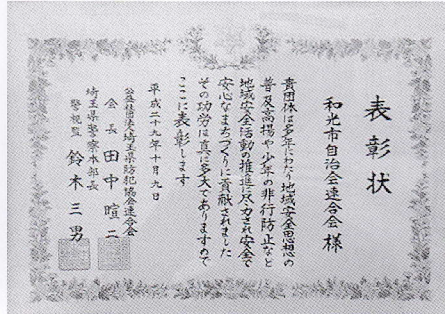 表彰状
和光市自治会連合会 様
貴団体は多年にわたり地域安全思想の
普及高揚や少年の非行防止など
地域安全活動の推進に尽力され安全で
安心なまちづくりに貢献されました
その功労は真に多大でありますので
ここに表彰します
平成二十九年十月九日
公益社団法人埼玉県防犯協会連合会
会長 田中暄二
埼玉県警察本部長
警視監 鈴木三男